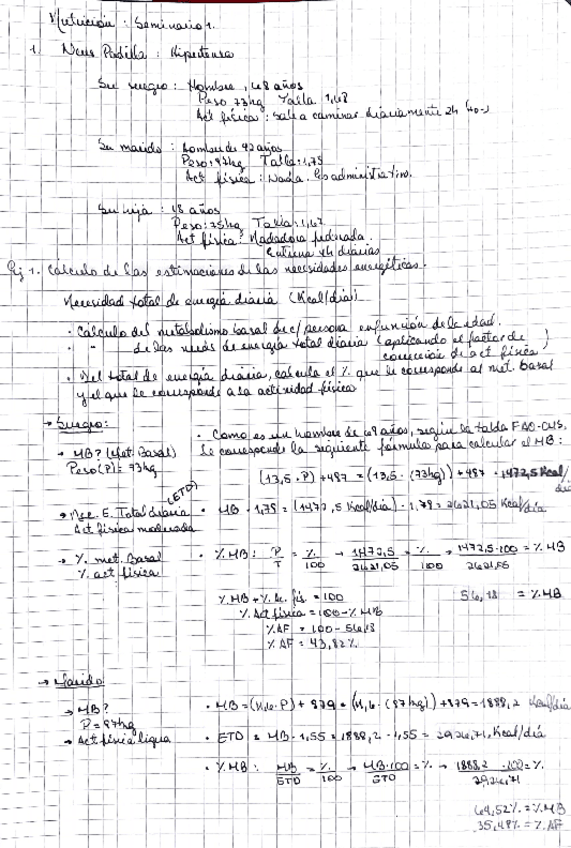 Nutrición : Seminario 1.
1. Neus Padilla : Hipertensa
Su suegro : Hombre , 68 años
Peso 73kg Talla 1,68
Act física : Sale a caminar diariamente 2h
Su marido : hombre de 42 años
Peso: 87kg Talla: 1,75
Act física : Nada. Es administrativo.
Su hija : 18 años
Talla: 1,67
Act física: Nadadora federada.
Entrena 4h diarias
Ej 1. Cálculo de las estimaciones de las necesidades energéticas.
Necesidad total de energía diaria (Kcal/día)
• Cálculo del metabolismo basal de c/ persona en función de la edad.
• " de las neces de energía total diaria (aplicando el factor de
corrección de act física)
• Del total de energía diaria, calcula el % que le corresponde al met. basal
y el que le corresponde a la actividad física
→ Suegro:
• Como es un hombre de 68 años, según la tabla FAO-OMS,
→ MB? (Met. Basal) le corresponde la siguiente fórmula para calcular el MB :
Peso(P)= 73kg
(13,5 · P) +487 = (13,5 · (73kg)) + 487 = 1472,5 Kcal/día
(ETD)
→ Nec. E. Total diaria • MB · 1,78 = (1472,5 Kcal/día) · 1,78 = 2621,05 Kcal/día
Act física moderada
→ % met. Basal • % MB : P/T = %/100 → 1472,5/2621,05 = %/100 → 1472,5·100/2621,05 = % MB
% act física
56,18 = % MB
% MB + % Ac. fís. = 100
% Act física = 100 - % MB
% AF = 100 - 56,18
% AF = 43,82%
→ Marido:
→ MB? • MB = (11,6 · P) + 879 = (11,6 · (87kg)) + 879 = 1888,2 Kcal/día
P = 87kg
→ Act física ligera • ETD = MB · 1,55 = 1888,2 · 1,55 = 2926,71 Kcal/día
• % MB : MB/ETD = %/100 → MB·100/ETD = % → 1888,2 · 100/2926,71 = %
64,52% = % MB
35,48% = % AF